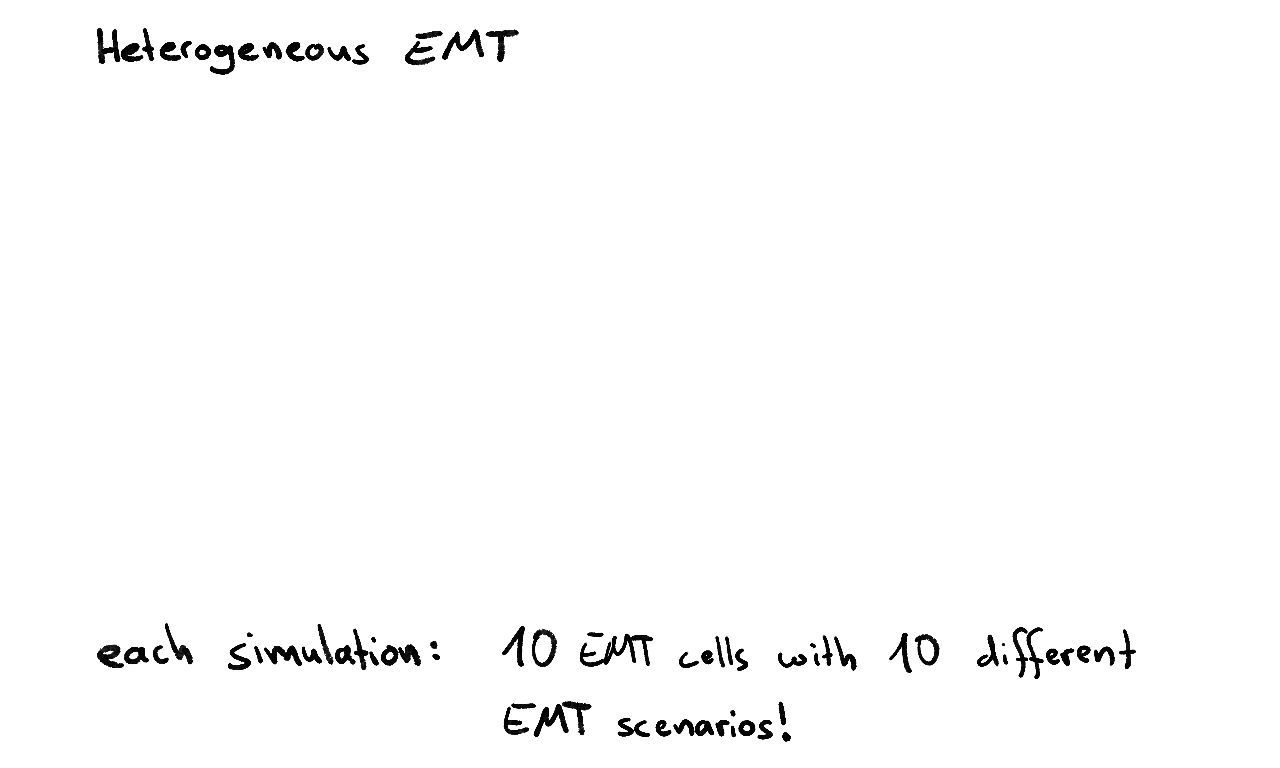 Heterogeneous EMT
each simulation: 10 EMT cells with 10 different
EMT scenarios!